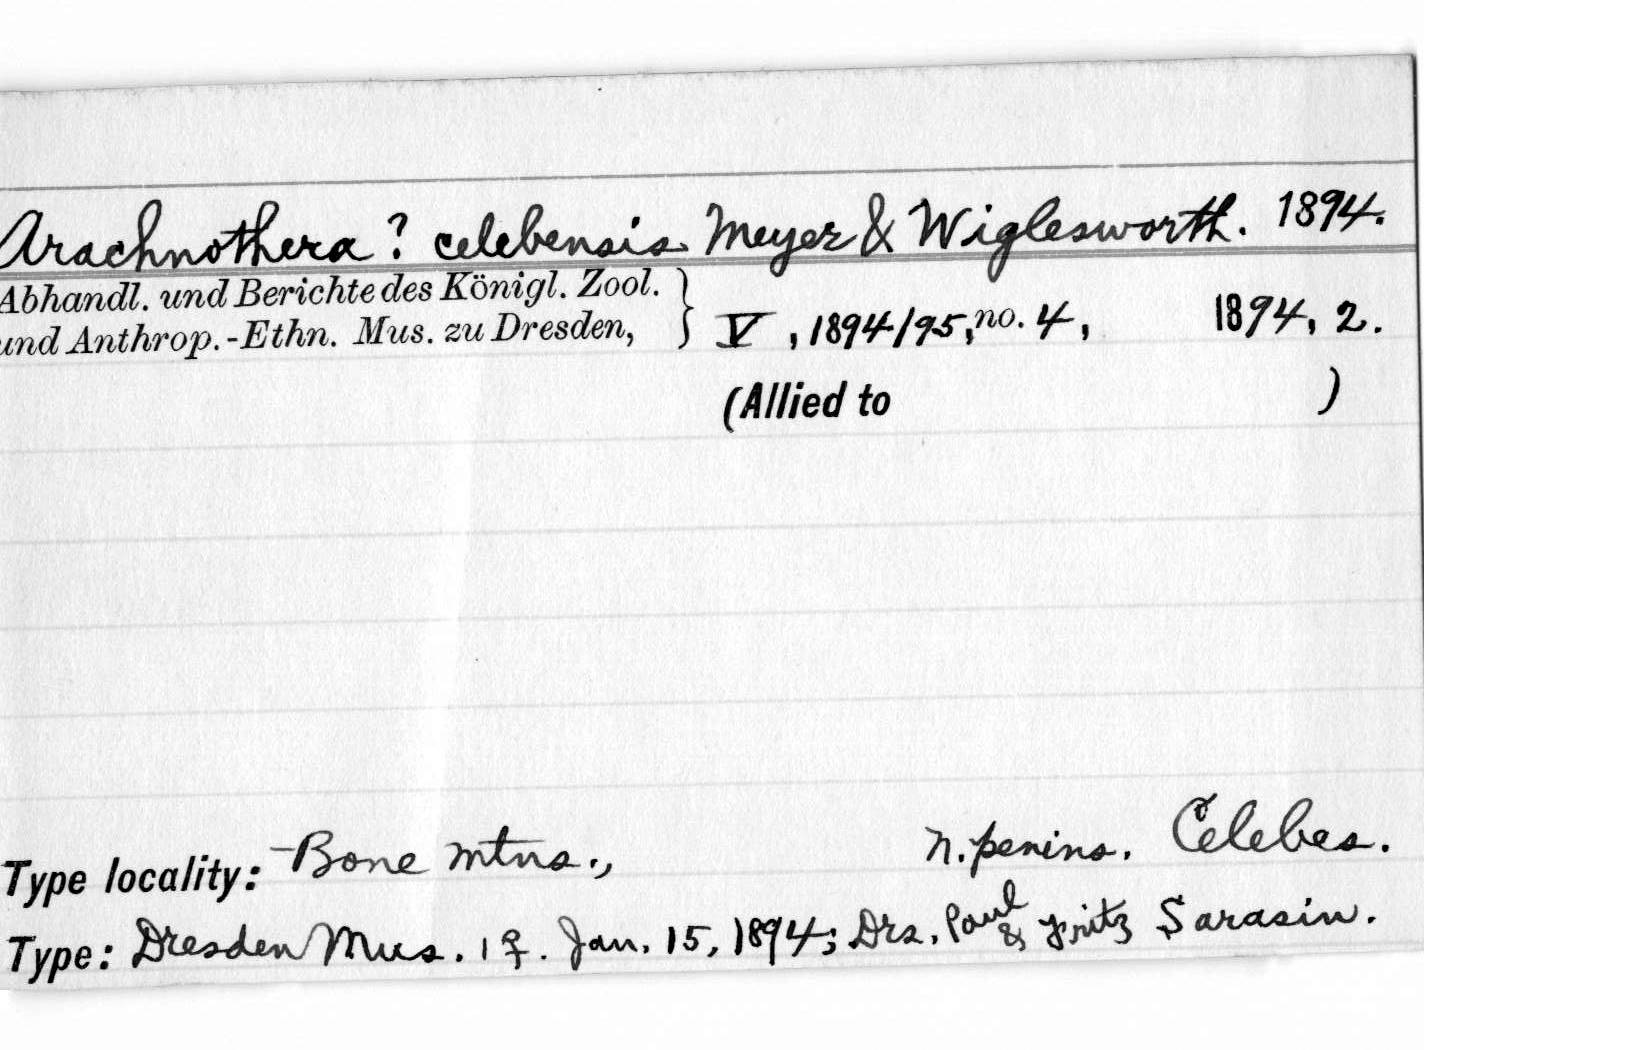 Arachnothera? celebensis Meyer & Wiglesworth. 1894.
Abhandl. und Berichte des Königl. Zool.
und Anthrop.-Ethn. Mus. zu Dresden, } V, 1894/95, no. 4, 1894, 2.
(Allied to )
Type locality: Bone mtns., N. penins. Celebes.
Type: Dresden Mus. 1 ♀. Jan. 15, 1894; Drs. Paul & Fritz Sarasin.